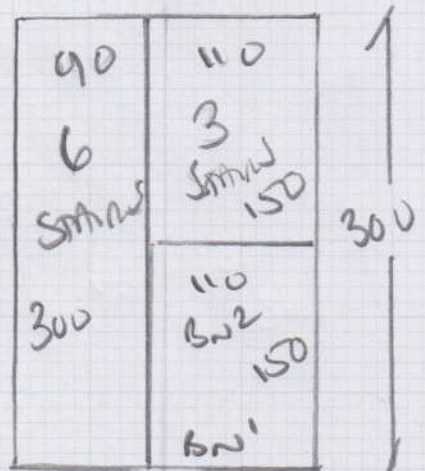 90
6
STAIRS
300
110
3
STAIRS
150
110
BN2
150
BN1
300